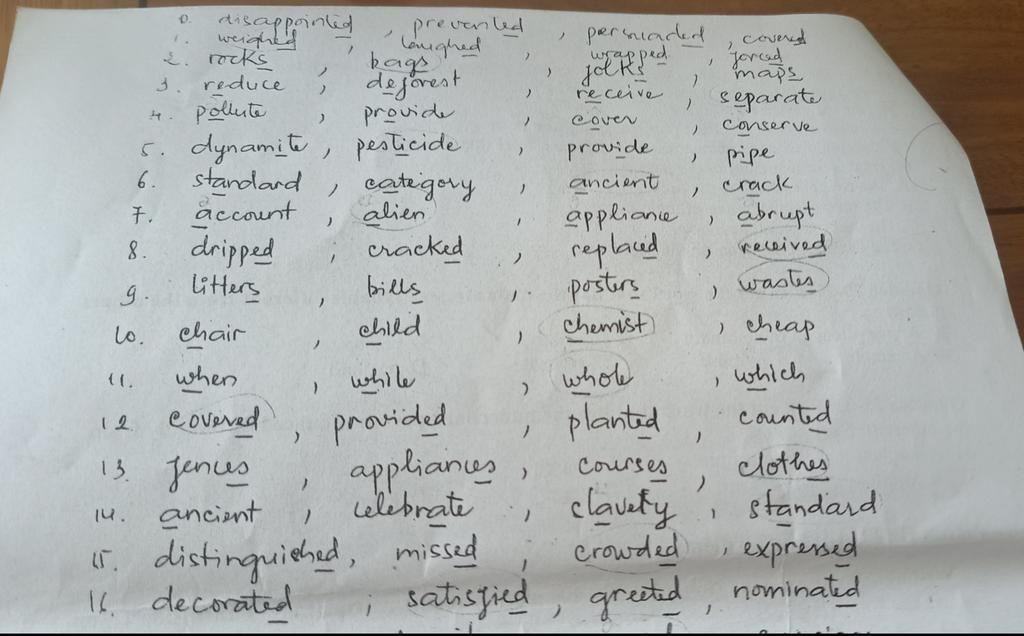 0. disappointed , prevented , persuaded , covered
1. weighed , laughed , wrapped , forced
2. rocks , bags , folks , maps
3. reduce , deforest , receive , separate
4. pollute , provide , cover , conserve
5. dynamite , pesticide , provide , pipe
6. standard , category , ancient , crack
7. account , alien , appliance , abrupt
8. dripped , cracked , replaced , received
9. litters , bills , posters , wastes
10. chair , child , chemist , cheap
11. when , while , whole , which
12 covered , provided , planted , counted
13. fences , appliances , courses , clothes
14. ancient , celebrate , , standard
15. distinguished, missed , crowded , expressed
16. decorated , satisfied , greeted , nominated